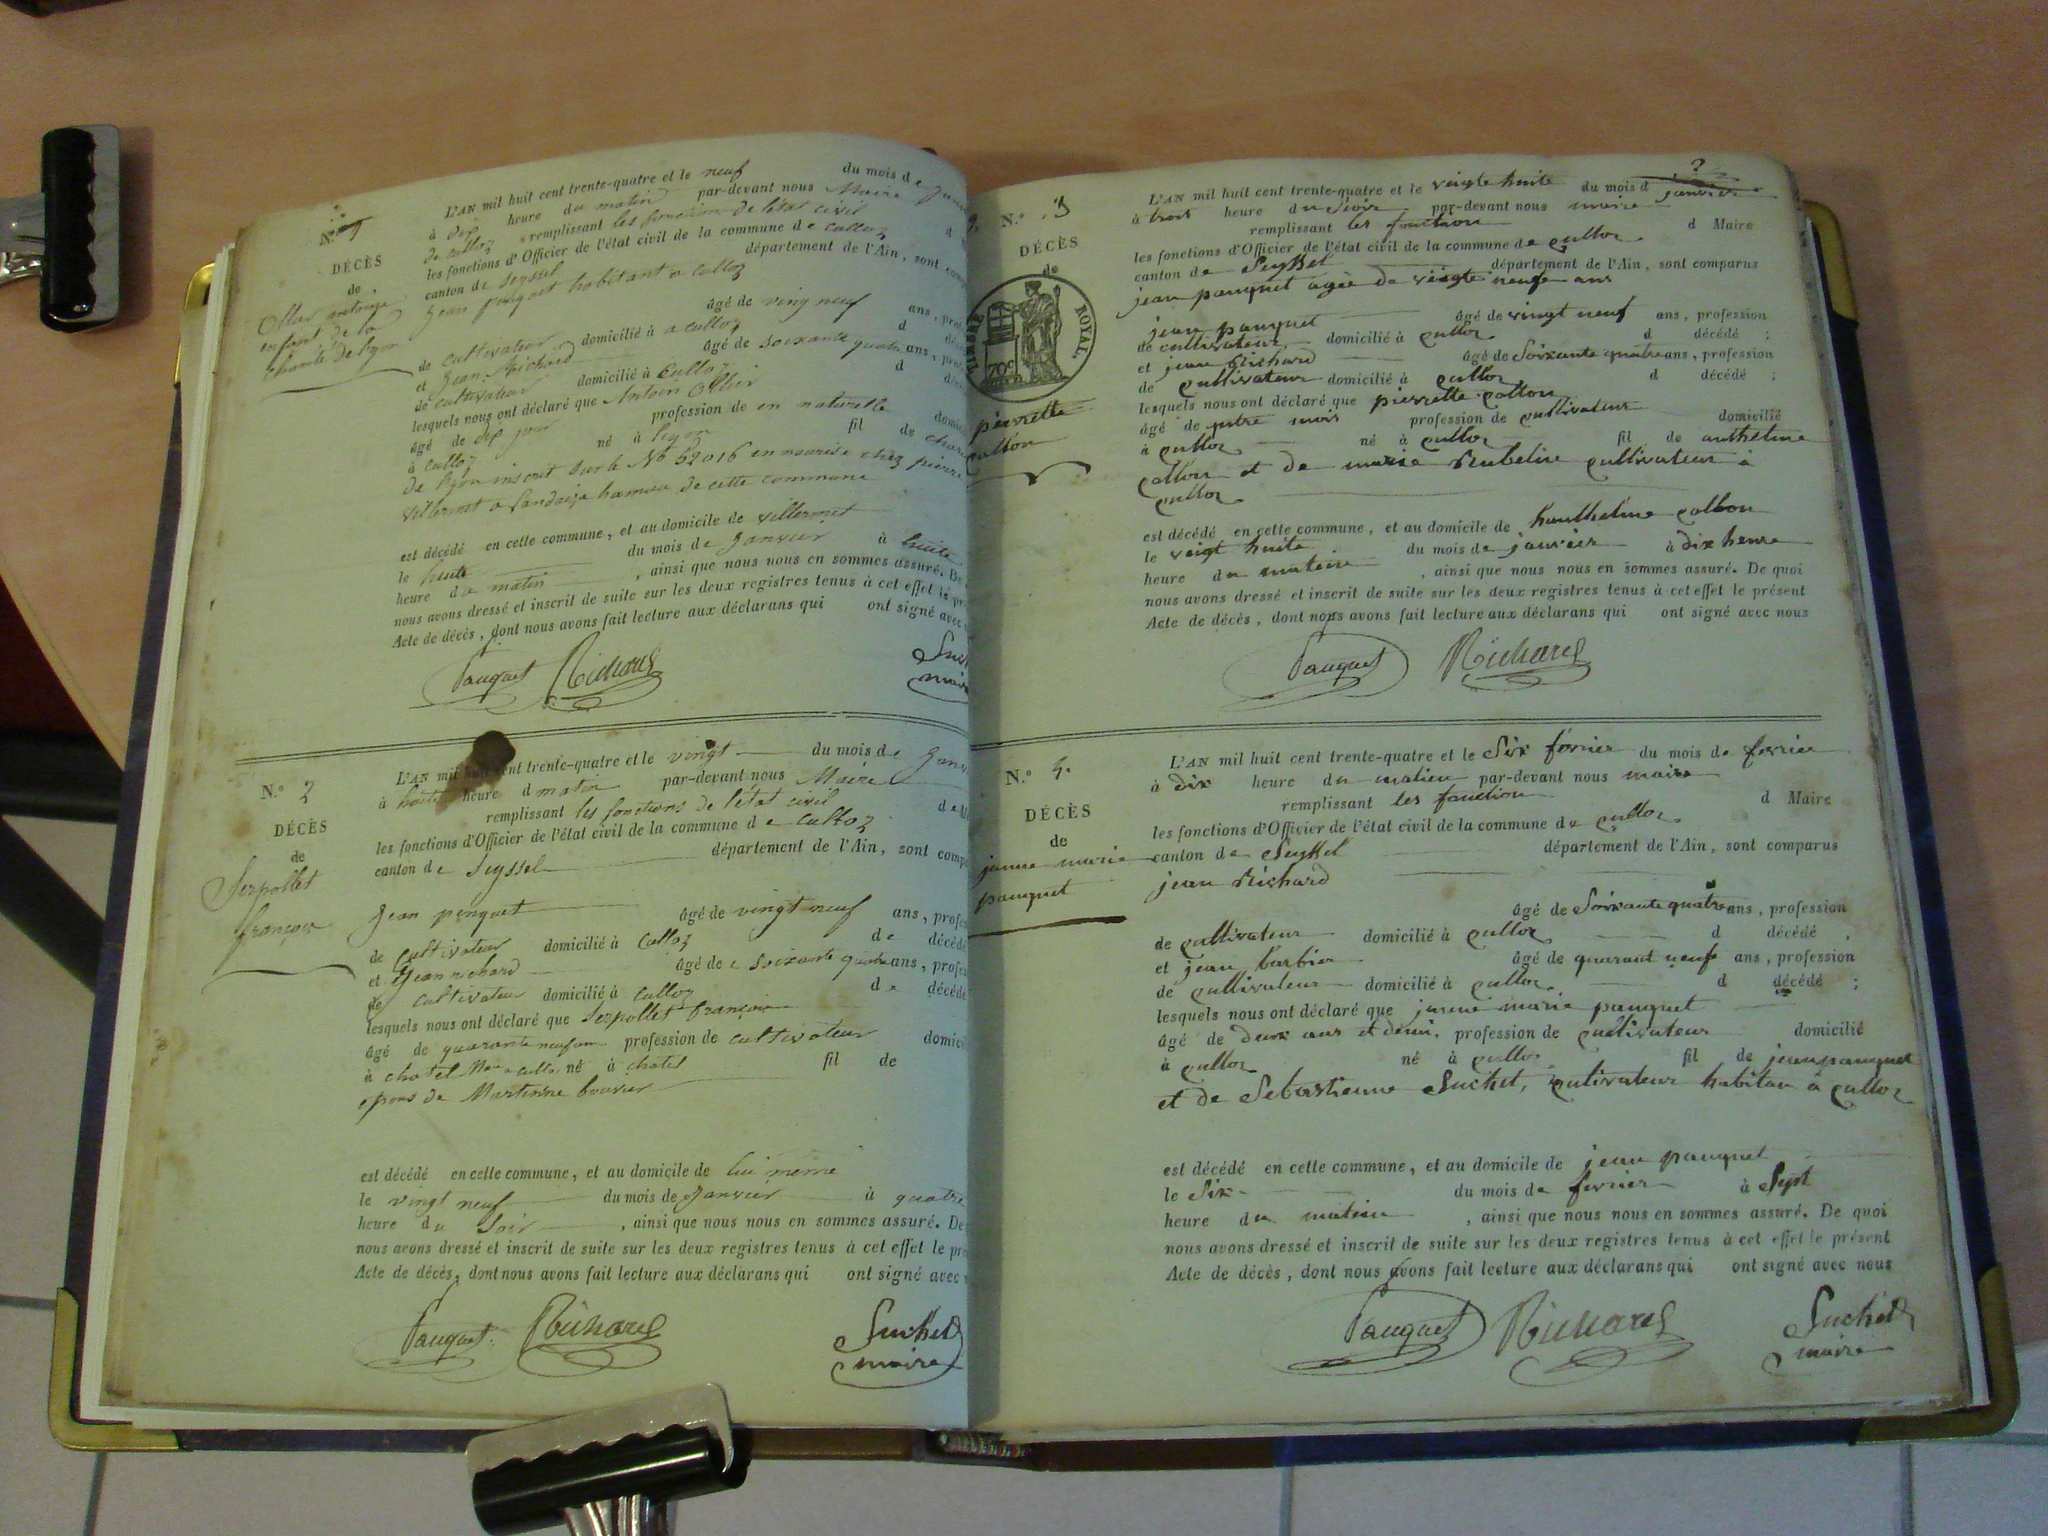 N.º 1
DÉCÈS
de
Ollier antoine
enfant de la
charité de lyon
L'AN mil huit cent trente-quatre et le neuf du mois de
à dix heure du matin par-devant nous Maire
de culloz remplissant les fonction de l'état civil
les fonctions d'Officier de l'état civil de la commune de culloz
canton de Seyssel département de l'Ain, sont
Jean pauquet habitant a culloz
âgé de vingt neuf ans,
de cultivateur domicilié à a culloz d
et Jean Richard âgé de soixante quatre ans,
de cultivateur domicilié à Culloz d
lesquels nous ont déclaré que Antoin Ollier
âgé de dix jour profession de en naturelle
à culloz né à lyon fil de
De lyon inscrit sur le No 52016 en nourise chez pierre
villermet a landaize hameau de cette commune
est décédé en cette commune, et au domicile de villermet
le huite du mois de Janvier à huite
heure du matin, ainsi que nous nous en sommes assuré. De
nous avons dressé et inscrit de suite sur les deux registres tenus à cet effet le
Acte de décès, dont nous avons fait lecture aux déclarans qui ont signé avec
Pauquet Richard
N.º 2
DÉCÈS
de
Serpollet
françois
L'AN mil huit cent trente-quatre et le vingt du mois de
à huite heure d matin par-devant nous Maire
remplissant les fonctions de l'état civil
les fonctions d'Officier de l'état civil de la commune d e culloz
canton de Seyssel département de l'Ain, sont
Jean penquet âgé de vingt neuf ans,
de cultivateur domicilié à Culloz de décédé
et Jean richard âgé de e soixante quatre ans,
de cultivateur domicilié à culloz de décédé
lesquels nous ont déclaré que Serpollet françois
âgé de quarante neuf an profession de cultivateur
à chatel né à chatel fil de
epous de Martinne bouvier
est décédé en cette commune, et au domicile de lui meme
le vingt neuf du mois de Janvier à quatre
heure du Soir, ainsi que nous nous en sommes assuré. De
nous avons dressé et inscrit de suite sur les deux registres tenus à cet effet le
Acte de décès, dont nous avons fait lecture aux déclarans qui ont signé avec
Pauquet Richard Suchet
maire
N.º 3
DÉCÈS
de
ROYAL
70 C
pierrette
callon
L'AN mil huit cent trente-quatre et le veingte huite du mois d janvier
à trois heure du Soir par-devant nous maire
remplissant les fonction d Maire
les fonctions d'Officier de l'état civil de la commune de culloz
canton de Seyssel département de l'Ain, sont comparus
jean pauquet agée de veingte neufe ans
jean pauquet âgé de vingt neuf ans, profession
de cultivateur domicilié à culloz d décédé ;
et jean Richard âgé de Soixante quatre ans, profession
de cultivateur domicilié à culloz d décédé ;
lesquels nous ont déclaré que pierrette callon
âgé de mois profession de cultivateur domicilié
à culloz né à culloz fil de anthelme
callon et de marie cultivateur à
culloz
est décédé en cette commune, et au domicile de hanthelme callon
le veigt huite du mois de janvier à dix heure
heure du matein, ainsi que nous nous en sommes assuré. De quoi
nous avons dressé et inscrit de suite sur les deux registres tenus à cet effet le présent
Acte de décès, dont nous avons fait lecture aux déclarans qui ont signé avec nous
Pauquet Richard
N.º 4.
DÉCÈS
de
jeanne marie
pauquet
L'AN mil huit cent trente-quatre et le Six fevrier du mois de fevrier
à dix heure du matien par-devant nous maire
remplissant les fonction d Maire
les fonctions d'Officier de l'état civil de la commune de culloz
canton de Seyssel département de l'Ain, sont comparus
jean Richard
âgé de Soixante quatre ans, profession
de cultivateur domicilié à culloz d décédé
et jean barbier âgé de quarant neufe ans, profession
de cultivateur domicilié à culloz d décédé ;
lesquels nous ont déclaré que janne marie pauquet
âgé de deux ans et demi. profession de cultivateur domicilié
à culloz né à culloz fil de jean pauquet
et de Sebastienne Suchet, cultivateur habitan à culloz
est décédé en cette commune, et au domicile de jean pauquet
le Six du mois de fevrier à Sept
heure du matein, ainsi que nous nous en sommes assuré. De quoi
nous avons dressé et inscrit de suite sur les deux registres tenus à cet effet le présent
Acte de décès, dont nous avons fait lecture aux déclarans qui ont signé avec nous
Pauquet Richard Suchet
maire